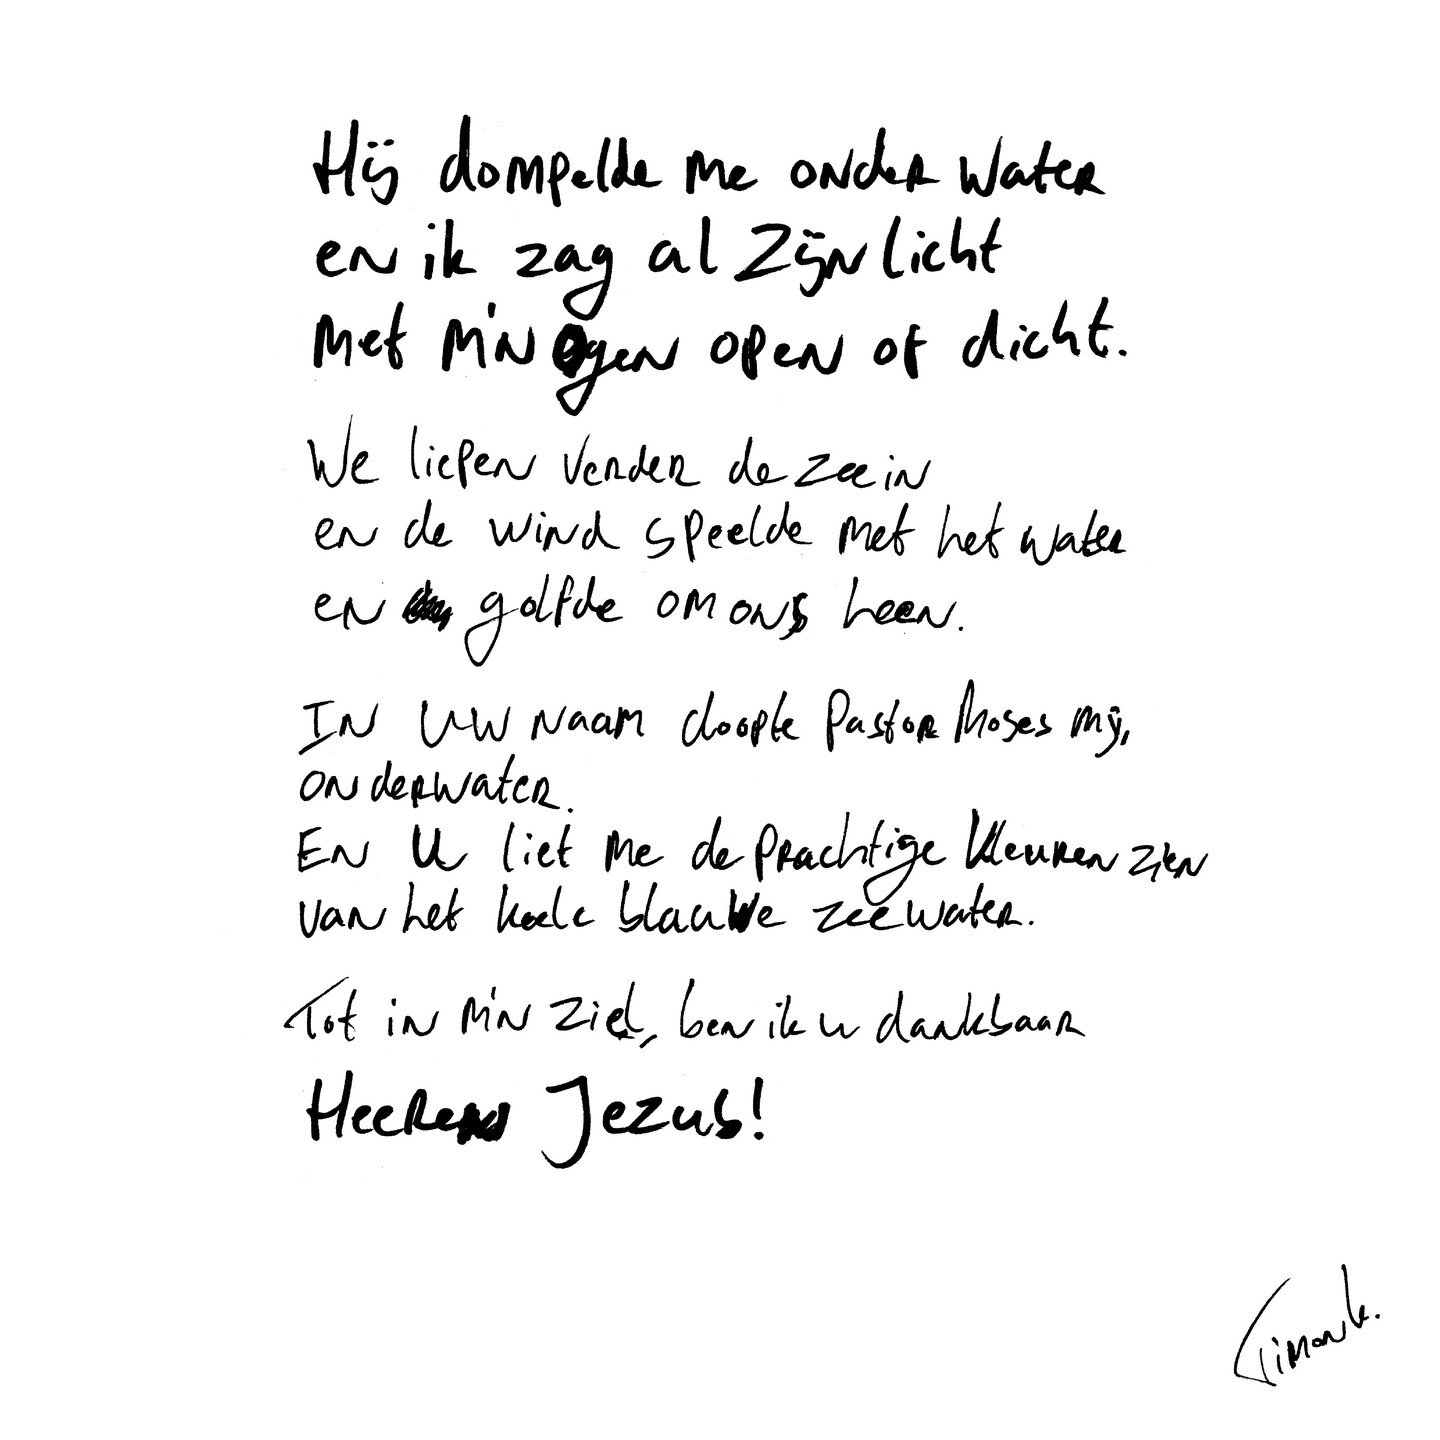 Hij dompelde me onder water
en ik zag al Zijn licht
met m'n ogen open of dicht.
We liepen verder de zee in
en de wind speelde met het water
en golfde om ons heen.
In UW naam doopte Pastor Moses mij,
onderwater.
En U liet me de prachtige kleuren zien
van het koele blauwe zeewater.
Tot in m'n ziel, ben ik u dankbaar
Heere Jezus!
Timon k.